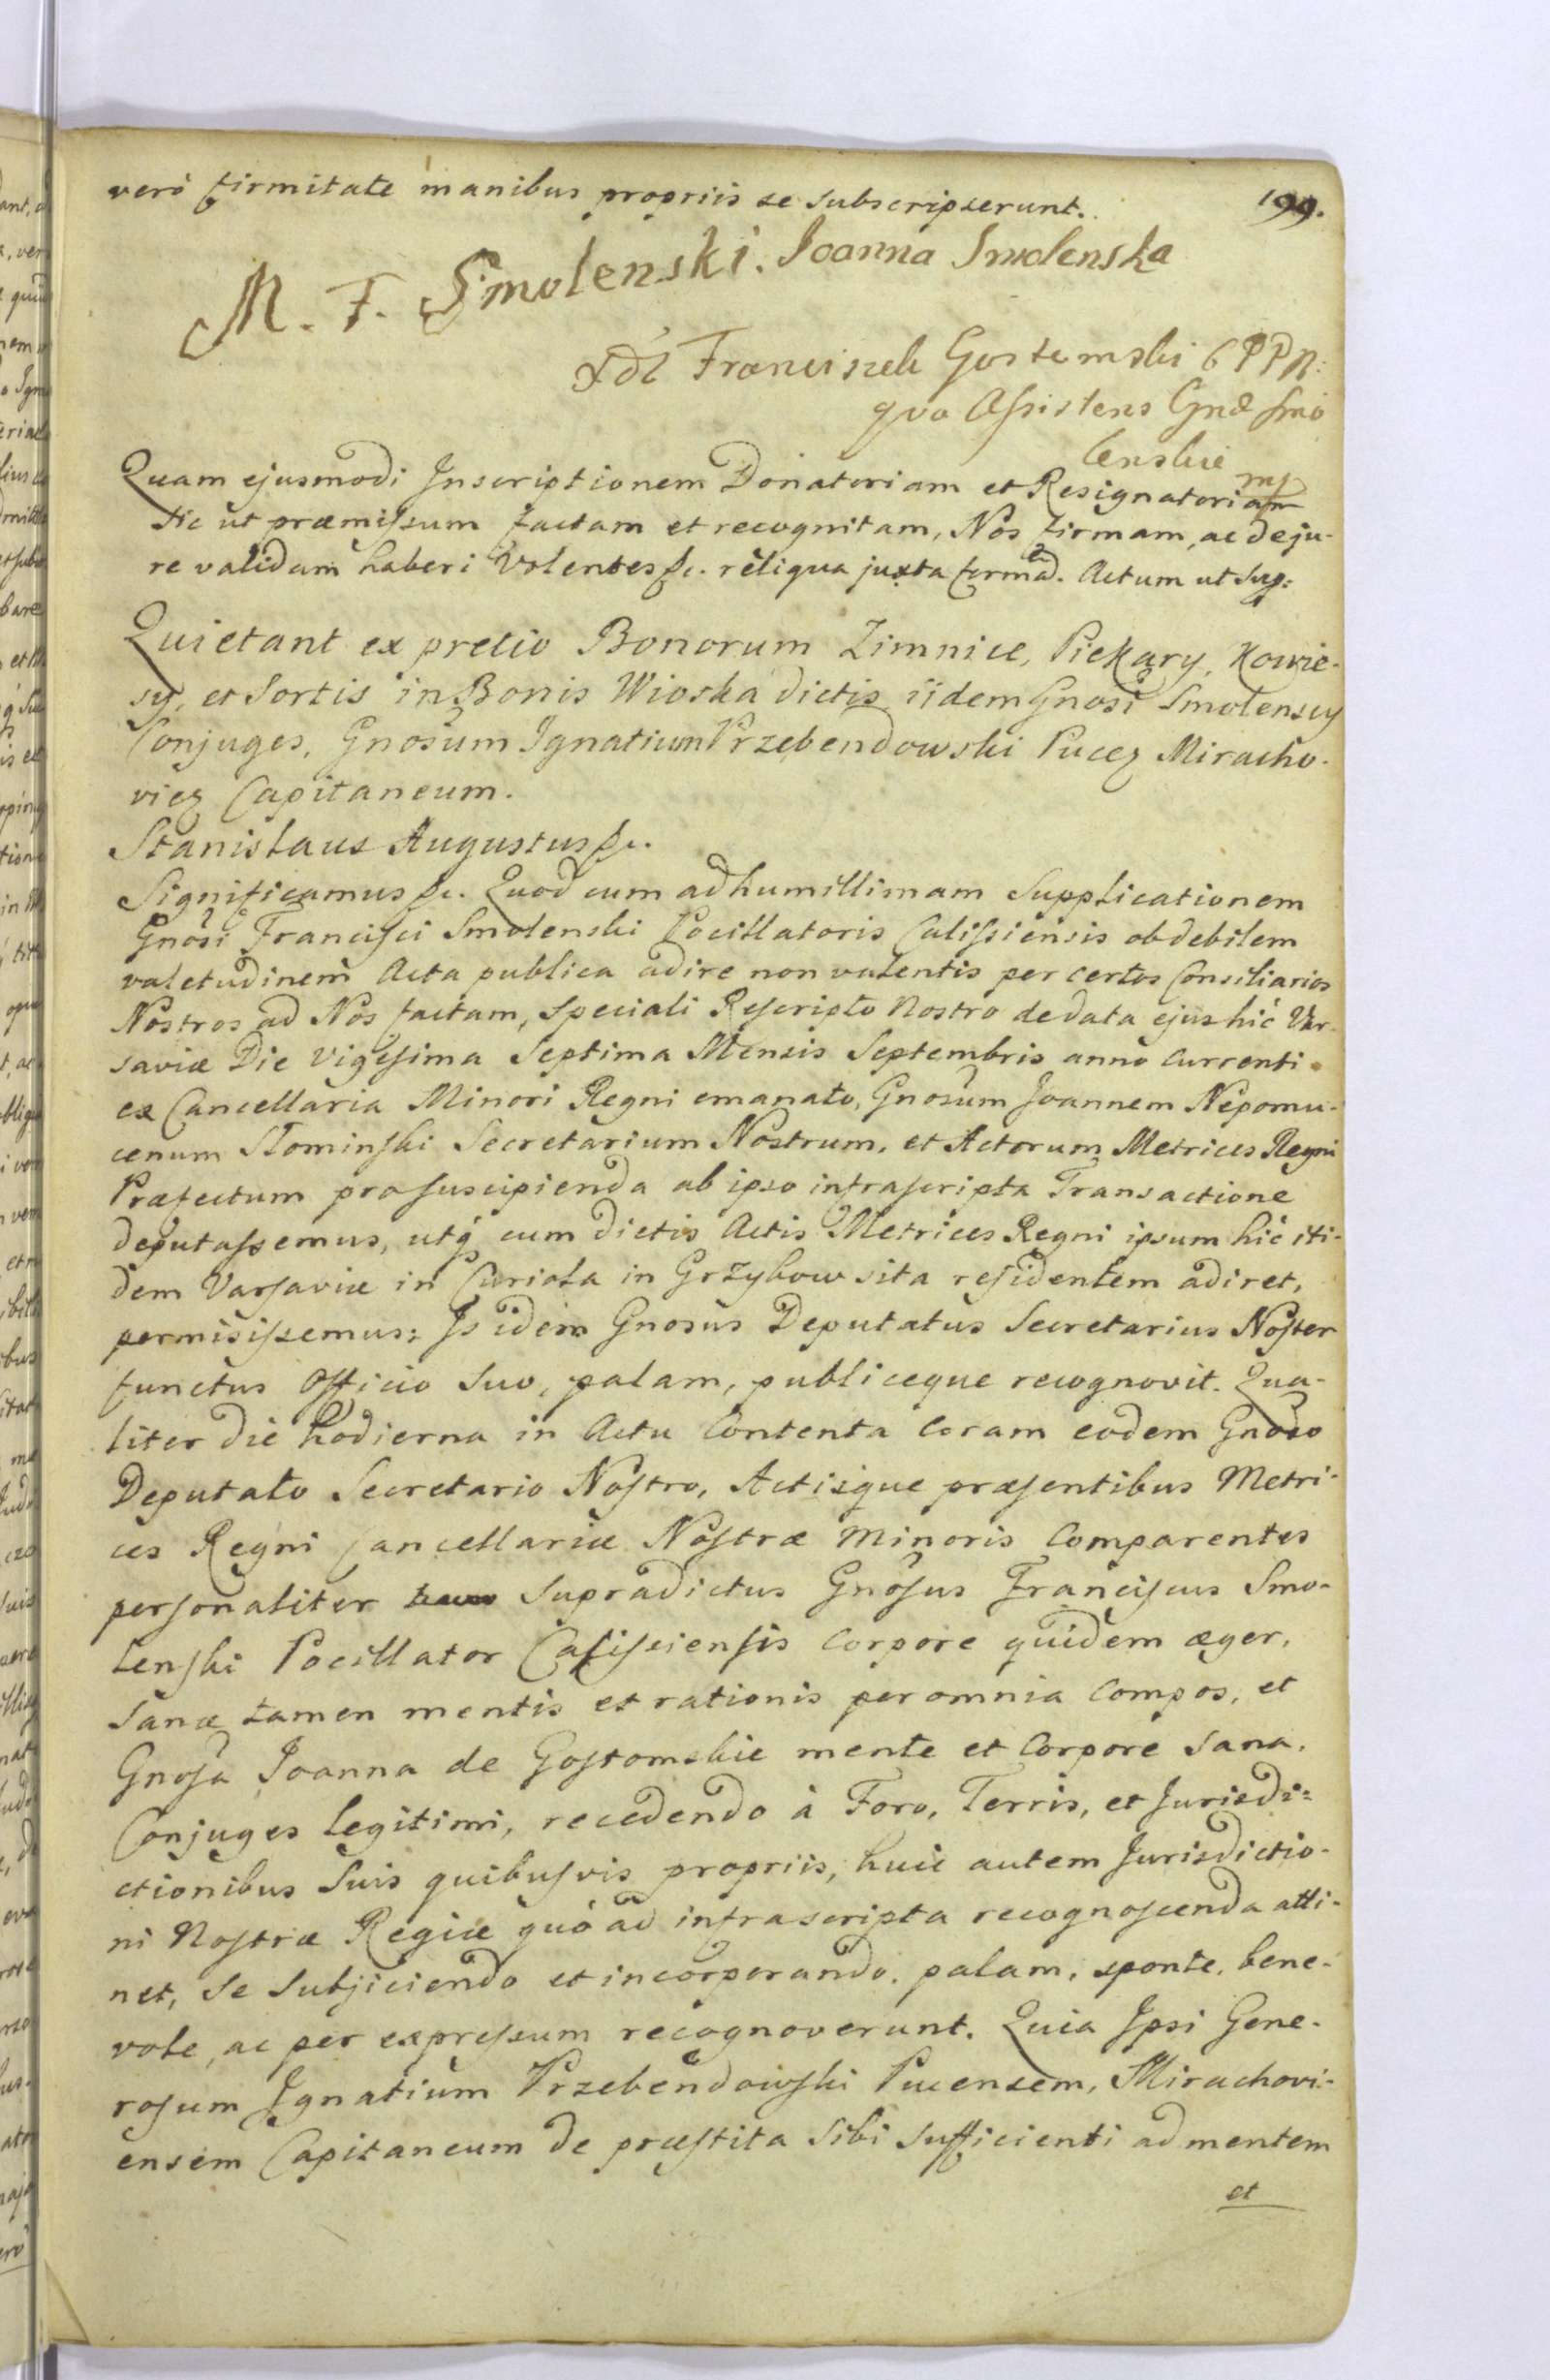 verò firmitate manibus propriis se subscripserunt.
199.
M. F. Smolenski. Joanna Smolenska
Franciszek Gostomski
qua Assistens Gnæ Smo
lenskie
Quam ejusmodi Inscriptionem Donatoriam et Resignatoriam
sic ut præmissum factam et recognitam, Nos firmam, ac de ju-
re validam haberi Volentes &c. reliqua juxta formã. Actum ut Sup:
Quietant ex pretio Bonorum Zimnice, Piekary, Kowie-
sy, et Sortis in Bonis Wioska dictis iidem Gnosi Smolenscy
Conjuges, Gnosum Ignatium Przebendowski Pucẽ Miracho-
viẽ Capitaneum.
Stanislaus Augustus &c.
Significamus &c. Quod cum ad humillimam Supplicationem
Gnosi Francisci Smolenski Pocillatoris Calissiensis ob debilem
valetudinem Acta publica adire non valentis per certos Consiliarios
Nostros ad Nos factam, Speciali Rescripto Nostro de data ejus hic Var-
saviæ Die Vigesima Septima Mensis Septembris anno Currenti
ex Cancellaria Minori Regni emanato, Gnosum Joannem Nepomu-
cenum Słominski Secretarium Nostrum, et Actorum Metrices Regni
Præfectum pro suscipienda ab ipso infrascripta Transactione
deputassemus, utq́ cum dictis Actis Metrices Regni ipsum hic iti-
dem Varsaviæ in Curiola in Grzybow sita residentem adiret,
permisissemus; Is idem Gnosus Deputatus Secretarius Noster
functus Officio Suo, palam, publiceque recognovit. Qua-
liter die hodierna in Actu Contenta Coram eodem Gnoso
Deputato Secretario Nostro, Actisque præsentibus Metri-
ces Regni Cancellariæ Nostræ Minoris Comparentes
personaliter Supradictus Gnosus Franciscus Smo-
lenski Pocillator Calissiensis Corpore quidem æger,
Sanæ tamen mentis et rationis per omnia Compos, et
Gnosa Joanna de Gostomskie mente et Corpore Sana,
Conjuges legitimi, recedendo à Foro, Terris, et Jurisdi-
ctionibus Suis quibusvis propriis, huic autem Jurisdictio-
ni Nostræ Regiæ quò ad infrascripta recognoscenda atti-
net, Se Subjiciendo et incorporando, palam, sponte, bene-
vole, ac per expressum recognoverunt. Quia Ipsi Gene-
rosum Ignatium Przebendowski Pucensem, Mirachovi-
ensem Capitaneum de præstita Sibi Sufficienti ad mentem
et